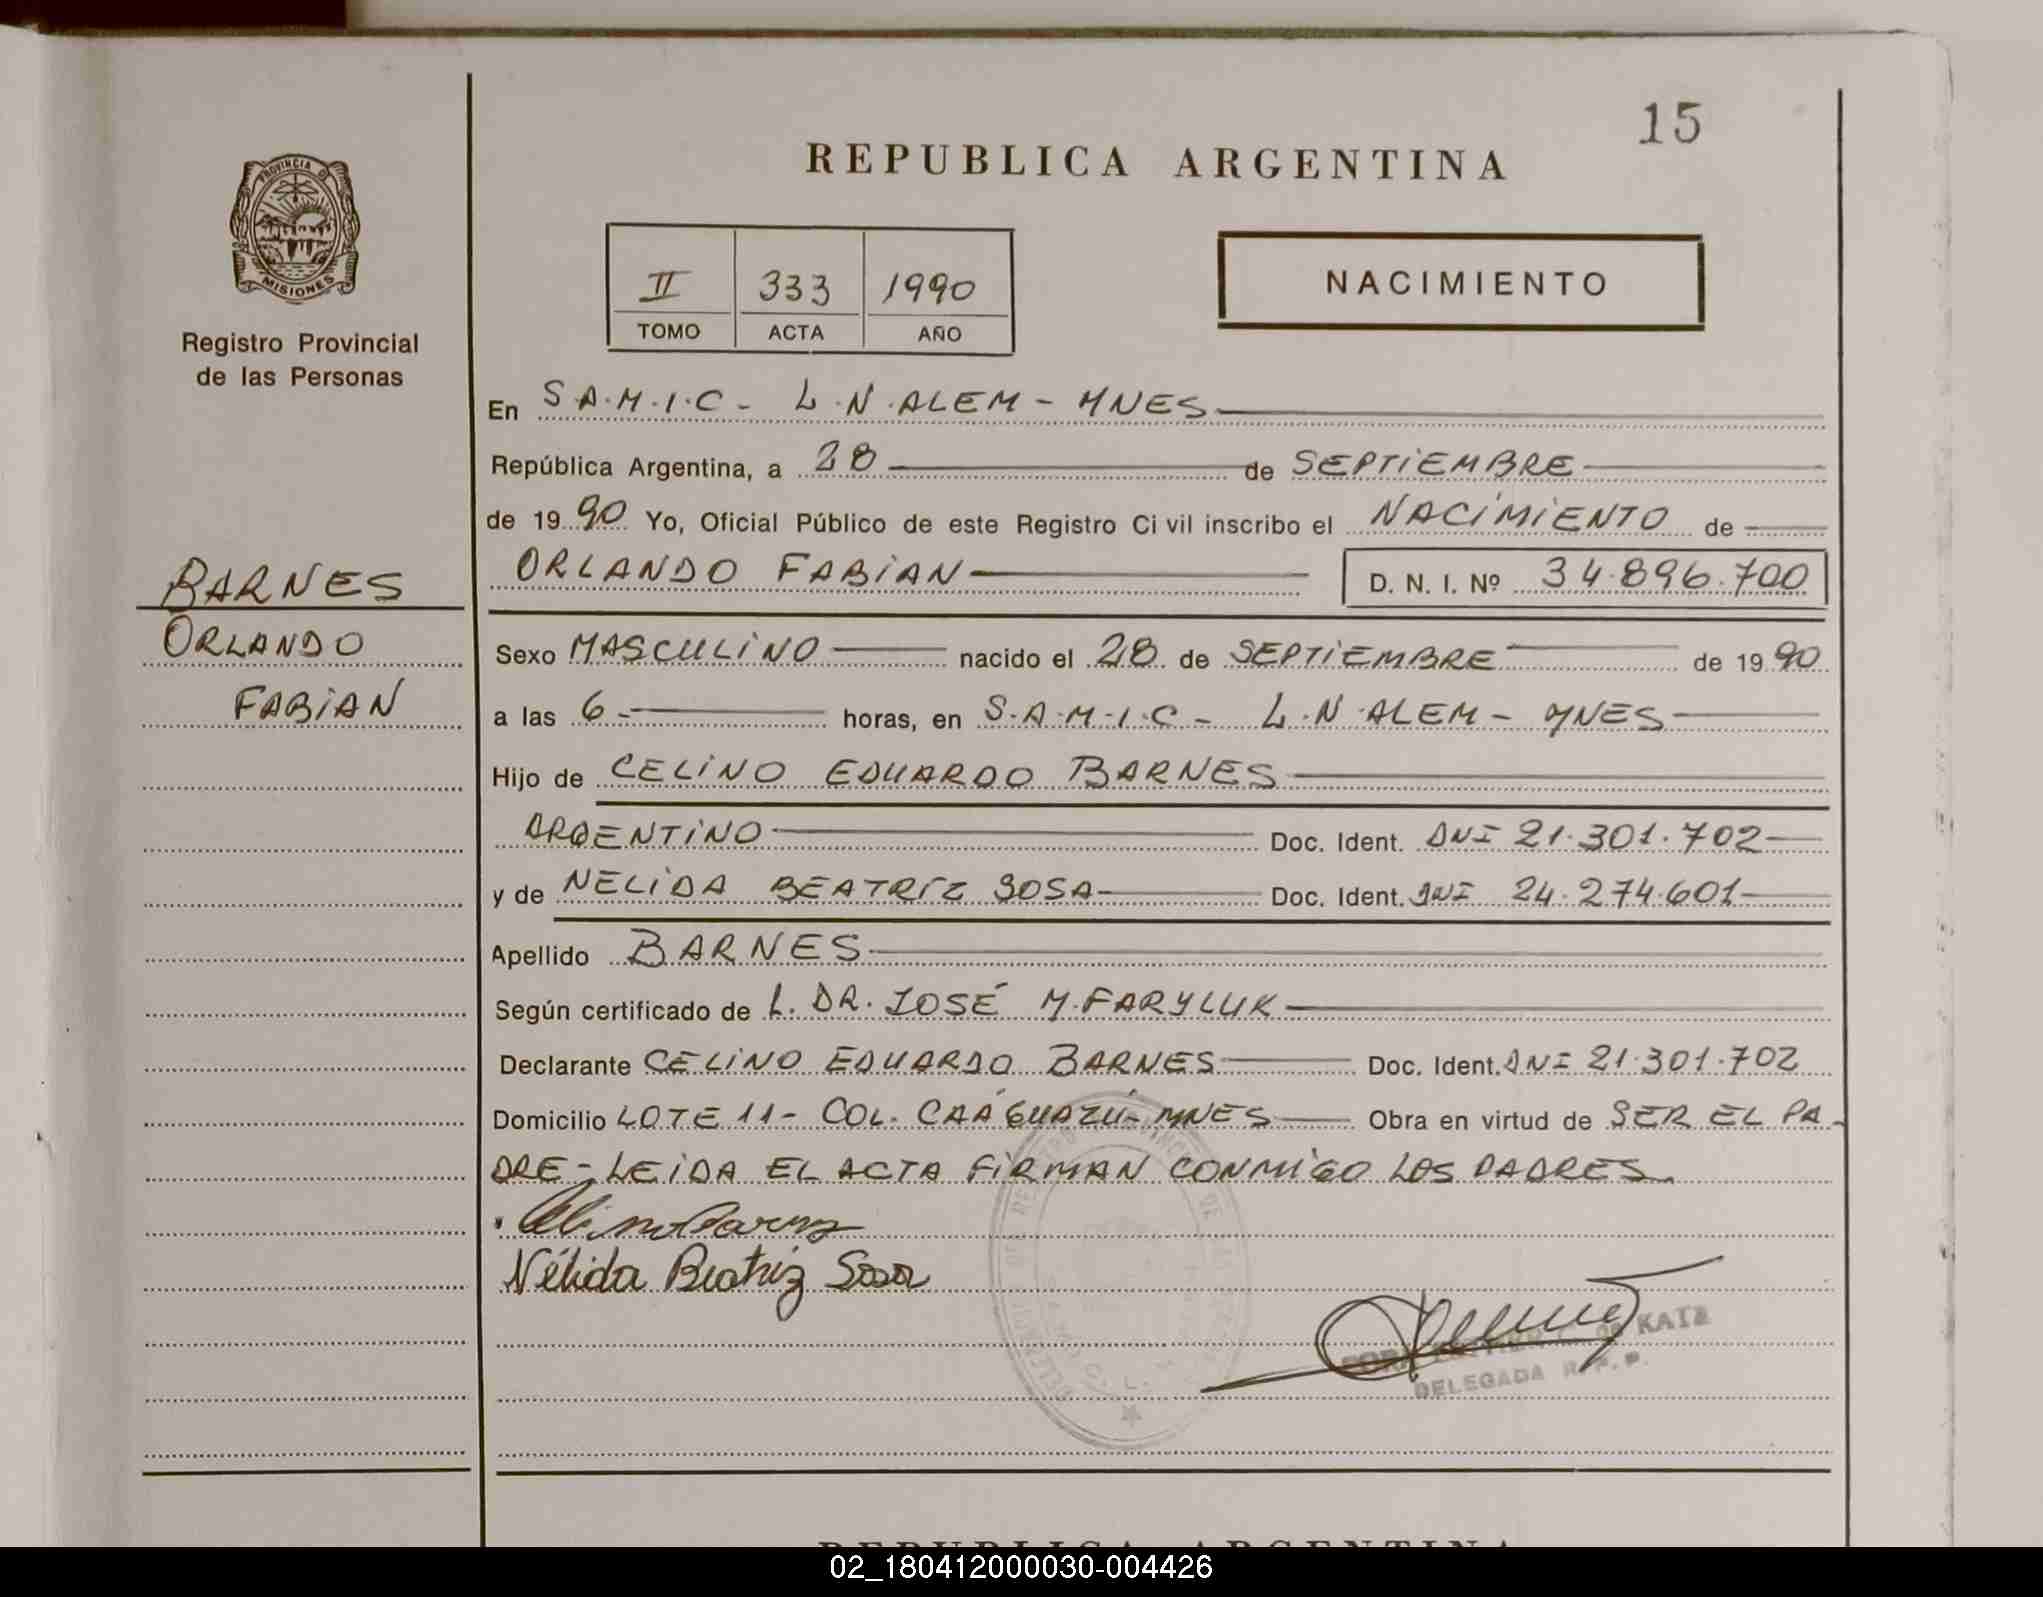 15
REPUBLICA ARGENTINA
PROVINCIA DE
MISIONES
Registro Provincial
de las Personas
II 333 1990
TOMO ACTA AÑO
NACIMIENTO
En S.A.M.I.C - L.N.ALEM - MNES
República Argentina, a 28 de SEPTIEMBRE
de 19 90 Yo, Oficial Público de este Registro Civil inscribo el NACIMIENTO de
ORLANDO FABIAN D. N. I. Nº 34.896.700
BARNES
ORLANDO
FABIAN
Sexo MASCULINO nacido el 28 de SEPTIEMBRE de 19 90
a las 6 - horas, en S.A.M.I.C - L.N ALEM - MNES
Hijo de CELINO EDUARDO BARNES
ARGENTINO Doc. Ident. DNI 21.301.702
y de NELIDA BEATRÍZ SOSA Doc. Ident. DNI 24.274.601
Apellido BARNES
Según certificado de L. DR. JOSÉ M. FARYLUK
Declarante CELINO EDUARDO BARNES Doc. Ident. DNI 21.301.702
Domicilio LOTE 11 - COL. CAÁ GUAZÚ - MNES Obra en virtud de SER EL PA-
DRE - LEIDA EL ACTA FIRMAN CONMIGO LOS PADRES
Nélida Beatriz Sosa
de KATZ
DELEGADA R.P.P.
REPUBLICA ARGENTINA
02_180412000030-004426